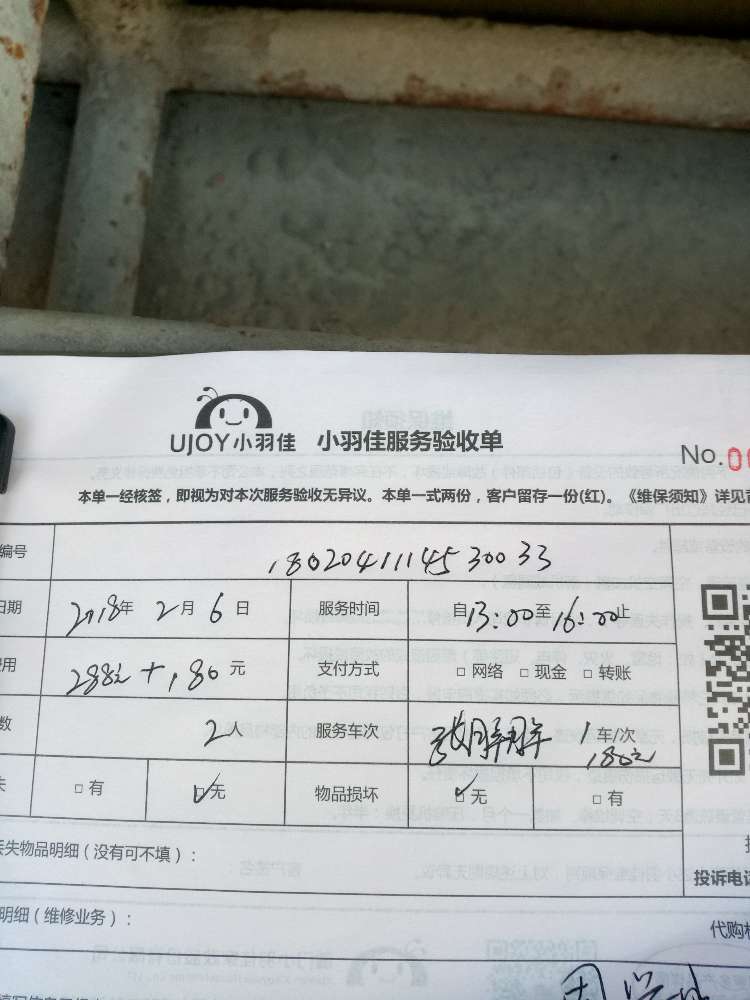 UJOY小羽佳 小羽佳服务验收单
No.
本单一经核签，即视为对本次服务验收无异议。本单一式两份，客户留存一份(红)。《维保须知》详见
编号 1802041114530033
日期 2018年 2月 6日 服务时间 自13:00至16:00止
费用 288元+180元 支付方式 □ 网络 □ 现金 □ 转账
数 2人 服务车次 1车/次
180元
失 □ 有 ☑ 无 物品损坏 ☑ 无 □ 有
丢失物品明细（没有可不填）：
投诉电话
明细（维修业务）：
代购